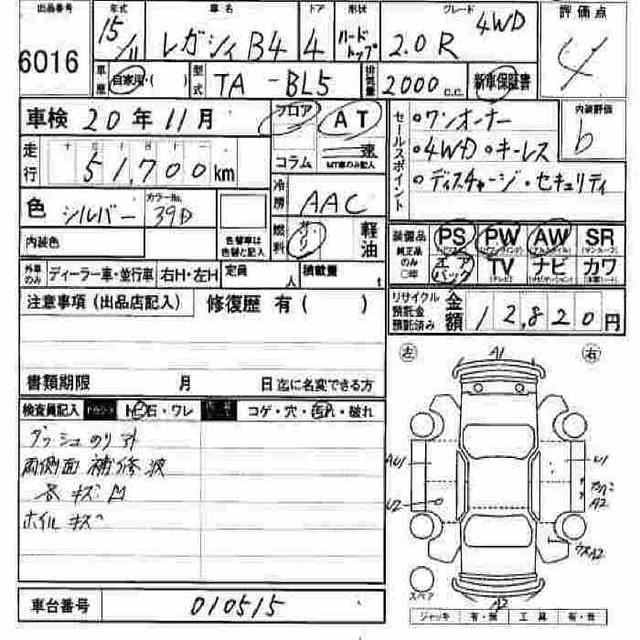 出品番号 年式 車名 ドア 形状 グレード 評価点
6016 15/11 レガシィB4 4 ハードトップ 2.0R 4WD 4
車歴 自家用・( ) 型式 TA-BL5 排気量 2000 c.c. 新車保証書
車検 20年11月 フロア AT セールスポイント ・ワンオーナー 内装評価
走行 51,700km コラム 速 MT車のみ記入 ・4WD ・キーレス b
・ディスチャージ・セキュリティ
色 シルバー カラーNo. 39D 冷房 AAC
内装色 色替車は色替と記入 燃料 ガソリン 軽油
装備品 純正品のみ○印 PS PW AW SR
エアバック TV ナビ カワ
外車のみ ディーラー車・並行車 右H・左H 定員 人 積載量 t
注意事項(出品店記入) 修復歴 有( )
リサイクル預託金預託済み 金額 12,820円
書類期限 月 日迄に名変できる方
検査員記入 トビ石・ワレ コゲ・穴・汚れ・破れ
両側面 補修波
各キズ凹
ホイルキズ
左 A1 右
AU1 U1
U2 A2
A2
スペア
ジャッキ 有・無 工具 有・無
車台番号 010515